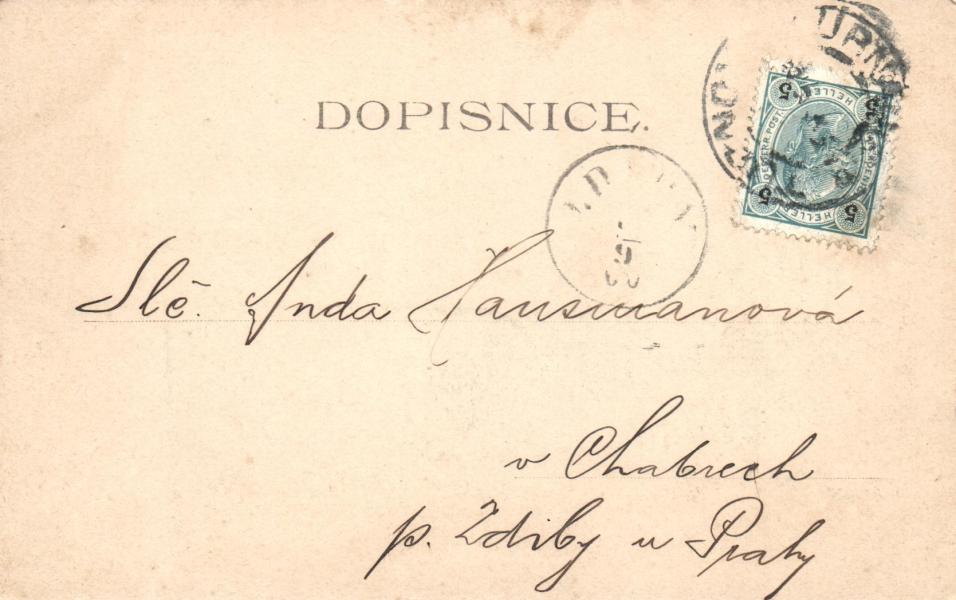 DOPISNICE.
5 HELLER 5
OESTERR. POST.
5 HELLER 5
Slč. Anda Hausmanová
v Chabrech
p. Zdiby u Prahy